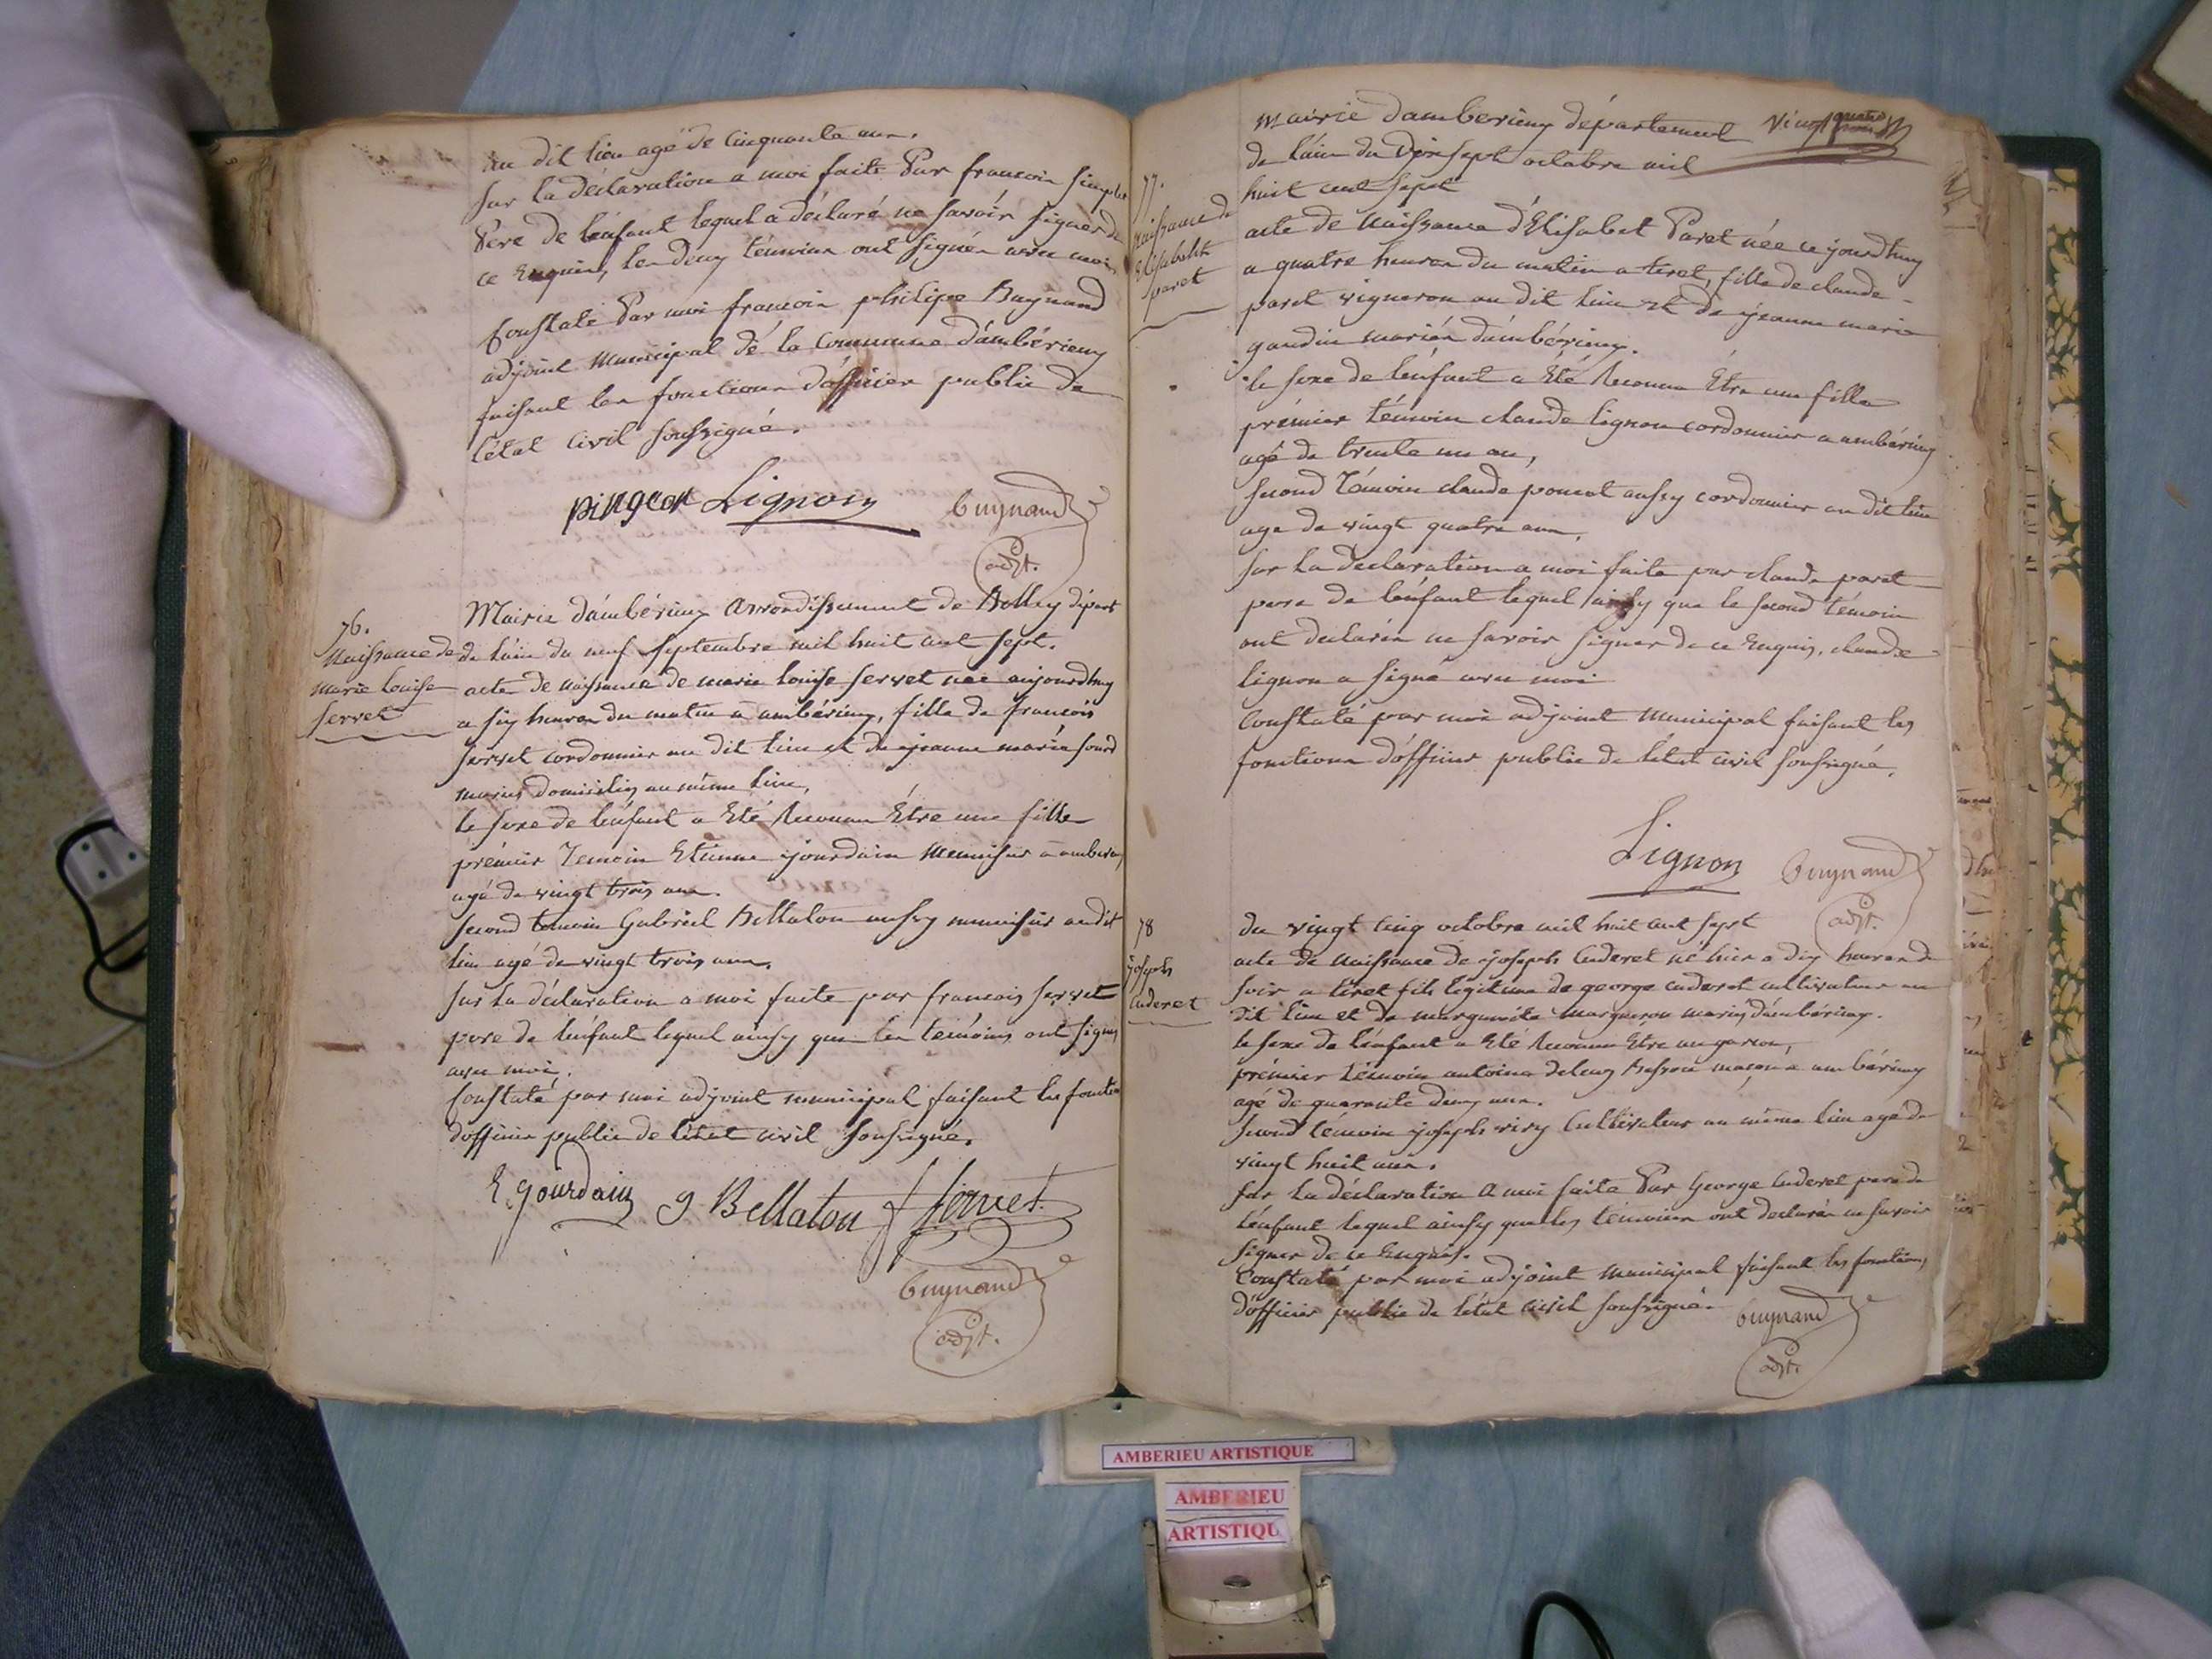 au dit lieu agé de Cinquante ans.
sur la déclaration a moi faite Par francois
Pere de lénfant lequel a déclaré ne savoir signer de
ce Enquis, les deux témoins ont signés avec moi
Constaté Par moi francois philipe Buynand
adjoint Municipal dé la Commune dámbérieux
faisant les fonctions dofficier public de
létat Civil soussigné.
pingeon Lignon buynand
adjt.
76.
Naissance de
marie louise
servet
Mairie dámbérieux Arrondissement de Belley départ
de láin du neuf septembre mil huit cent sept.
acte de naissance de marie louise servet née aujourdhuy
a six heures du matin a ambérieux, fille de francois
servet cordonnier au dit lieu et de jeanne marie
mariés domiciliés au même lieu,
le sexe de lénfant a Eté Reconnu Être une fille
prémier Temoin Etienne jourdain Menuisier a
agé de vingt trois ans.
second temoin Gabriel Bellaton aussy menuisier au dit
lieu agé de vingt trois ans.
sur la déclaration a moi faite par francois servet
pere de lénfant lequel ainsy que les témoins ont signés
avec moi.
Constaté par moi adjoint municipal faisant les
dofficier public de létat civil soussigné.
E gourdain g Bellaton f servet
buynand
adjt.
Mairie dambérieux département
de láin du Dix sept octobre mil
huit cent sept
77.
naissance de
Elisabeth
paret
acte de naissance d'Elisabet Paret née ce jourdhuy
a quatre heures du matin a tiret, fille de claude
paret vigneron au dit lieu et de jeanne marie
gaudin mariés dámbérieux.
le sexe de lénfant a Eté Reconnu Être une fille
prémier témoin claude lignon cordonnier a ambérieux
agé de trente un an,
second Témoin claude poncet aussy cordonnier au dit lieu
age de vingt quatre ans.
sur la declaration a moi faite par claude paret
pere de lénfant lequel ainsy que le second témoin
ont declarés ne savoir signer de ce Enquis, claude
lignon a signé avec moi
Constaté par moi adjoint Municipal faisant les
fonctions dófficier public de létat civil soussigné.
Lignon buynand
adjt.
78
joseph
Cuderet
du vingt cinq octobre mil huit cent sept
acte de naissance de joseph Cuderet né hier a dix heures du
soir a tiret fils légitime de george cuderet cultivateur au
dit lieu et de marguerite margueron mariés dámbérieux.
le sexe de lénfant a Eté Reconnu Etre un garcon,
prémier témoin antoine maçon a ambérieux
agé de quarante deux ans.
second temoin joseph viry Cultivateur au même lieu agé de
vingt huit ans.
sur la déclaration a moi faite Par George Cuderet pere de
lénfant lequel ainsy que les témoins ont declarés ne savoir
signer de ce Enquis.
Constaté par moi adjoint Municipal faisant les fonctions
dófficier public de létat civil soussigné. buynand
adjt.
AMBERIEU ARTISTIQUE
AMBERIEU
ARTISTIQU